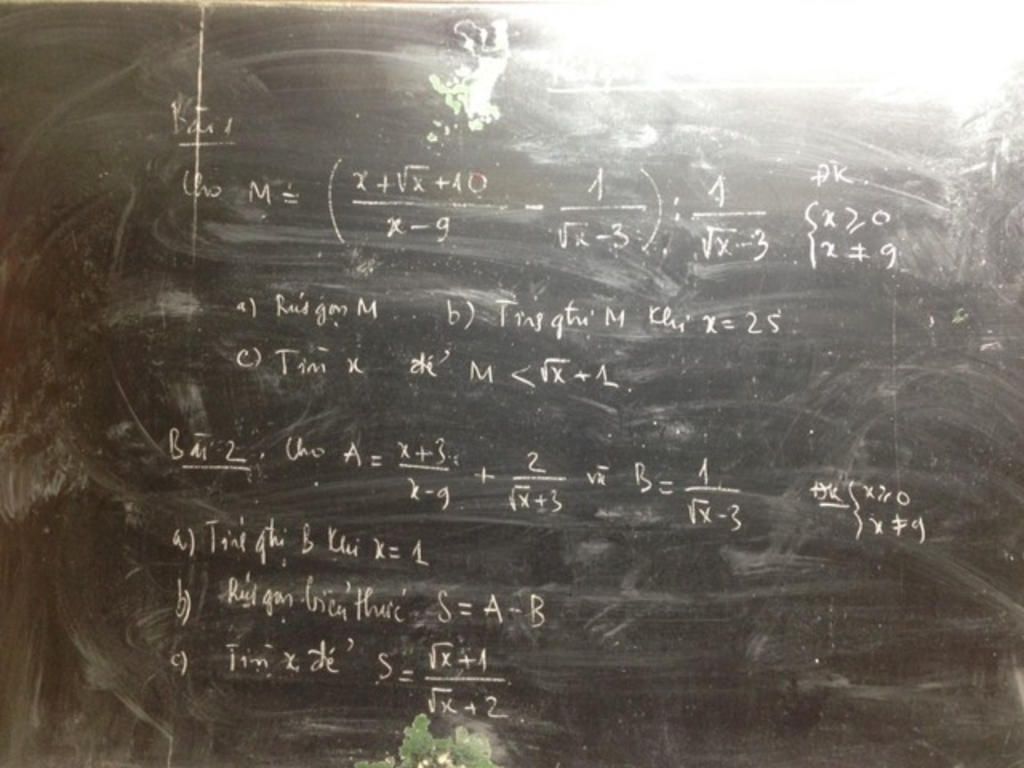 Bài 1
Cho M = ( (x+√x+10)/(x-9) - 1/(√x-3) ) : 1/(√x-3) ĐK. { x ≥ 0 x ≠ 9
a) Rút gọn M b) Tính gtrị M khi x = 25
c) Tìm x để M < √x + 1
Bài 2. Cho A = (x+3)/(x-9) + 2/(√x+3) và B = 1/(√x-3) ĐK { x ≥ 0 x ≠ 9
a) Tính gtrị B khi x = 1
b) Rút gọn biểu thức S = A - B
c) Tìm x để S = (√x+1)/(√x+2)